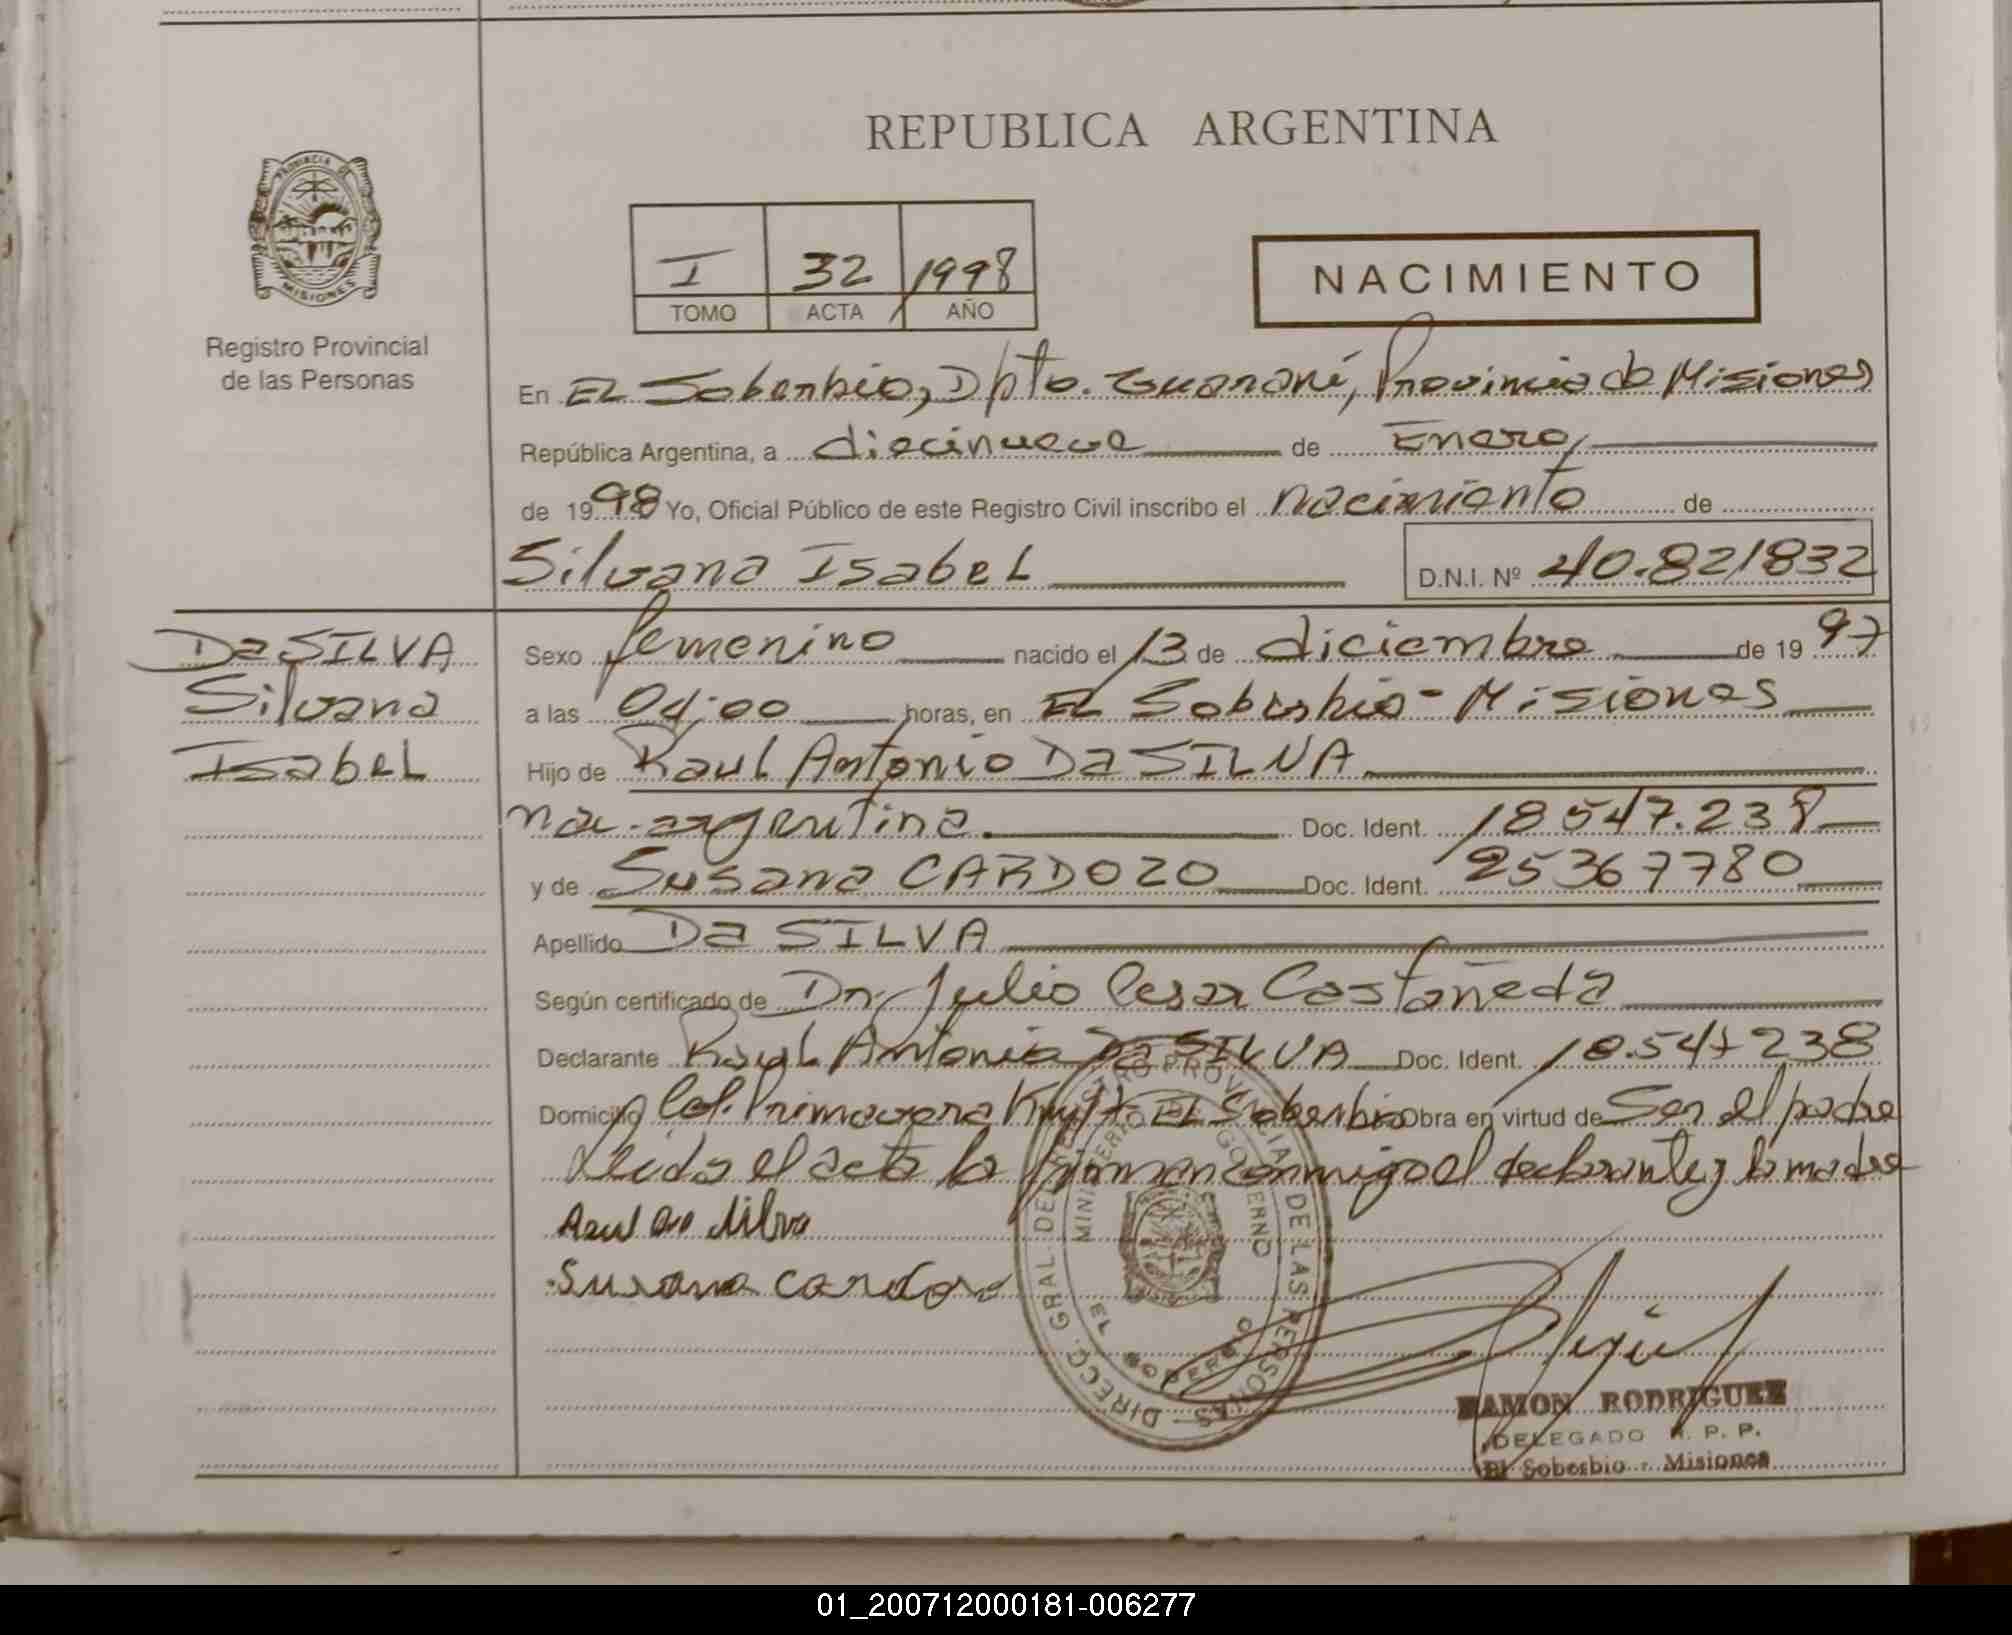 REPUBLICA ARGENTINA
PROVINCIA DE
MISIONES
Registro Provincial
de las Personas
I 32 1998
TOMO ACTA AÑO
NACIMIENTO
En EL Soberbio, Dpto. Guaraní, Provincia de Misiones
República Argentina, a diecinueve de Enero,
de 1998 Yo, Oficial Público de este Registro Civil inscribo el nacimiento de
Silvana Isabel D.N.I. Nº 40.821832
Da SILVA
Silvana
Isabel
Sexo femenino nacido el 13 de diciembre de 1997
a las 04:00 horas, en EL Soberbio - Misiones
Hijo de Raul Antonio Da SILVA
nac. argentina. Doc. Ident. 18547.238
y de Susana CARDOZO Doc. Ident. 25367780
Apellido Da SILVA
Según certificado de Dr. Julio Cesar Castañeda
Declarante Raul Antonio Da SILVA Doc. Ident. 18.547238
Domicilio Col. Primavera EL Soberbio Obra en virtud de Ser el padre
Leida el acta la firman conmigo el declarante y la madre
Raul Da Silva
Susana Cardozo
DIRECC. GRAL. DEL REGISTRO PROVINCIAL DE LAS PERSONAS
MINISTERIO DE GOBIERNO
EL SOBERBIO
RAMON RODRIGUEZ
DELEGADO R. P. P.
El Soberbio - Misiones
01_200712000181-006277